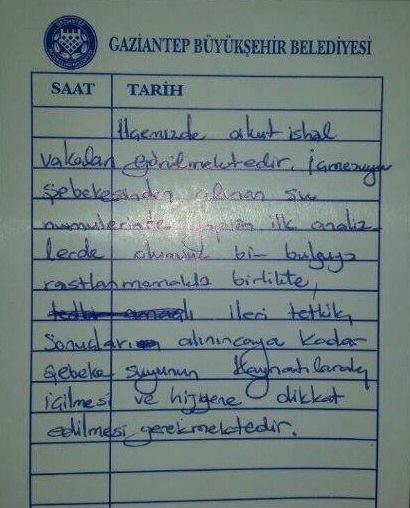 GAZİANTEP
GAZİANTEP BÜYÜKŞEHİR BELEDİYESİ
SAAT TARİH
İlçemizde akut ishal
vakaları görülmektedir. İçmesuyu
şebekesinden alınan su
numulerinde yapılan ilk analiz
lerde olumsuz bir bulguya
rastlanmamakla birlikte,
ileri tetkik
sonuçları alınıncaya kadar
şebeke suyunun kaynatılarak
içilmesi ve hijyene dikkat
edilmesi gerekmektedir.